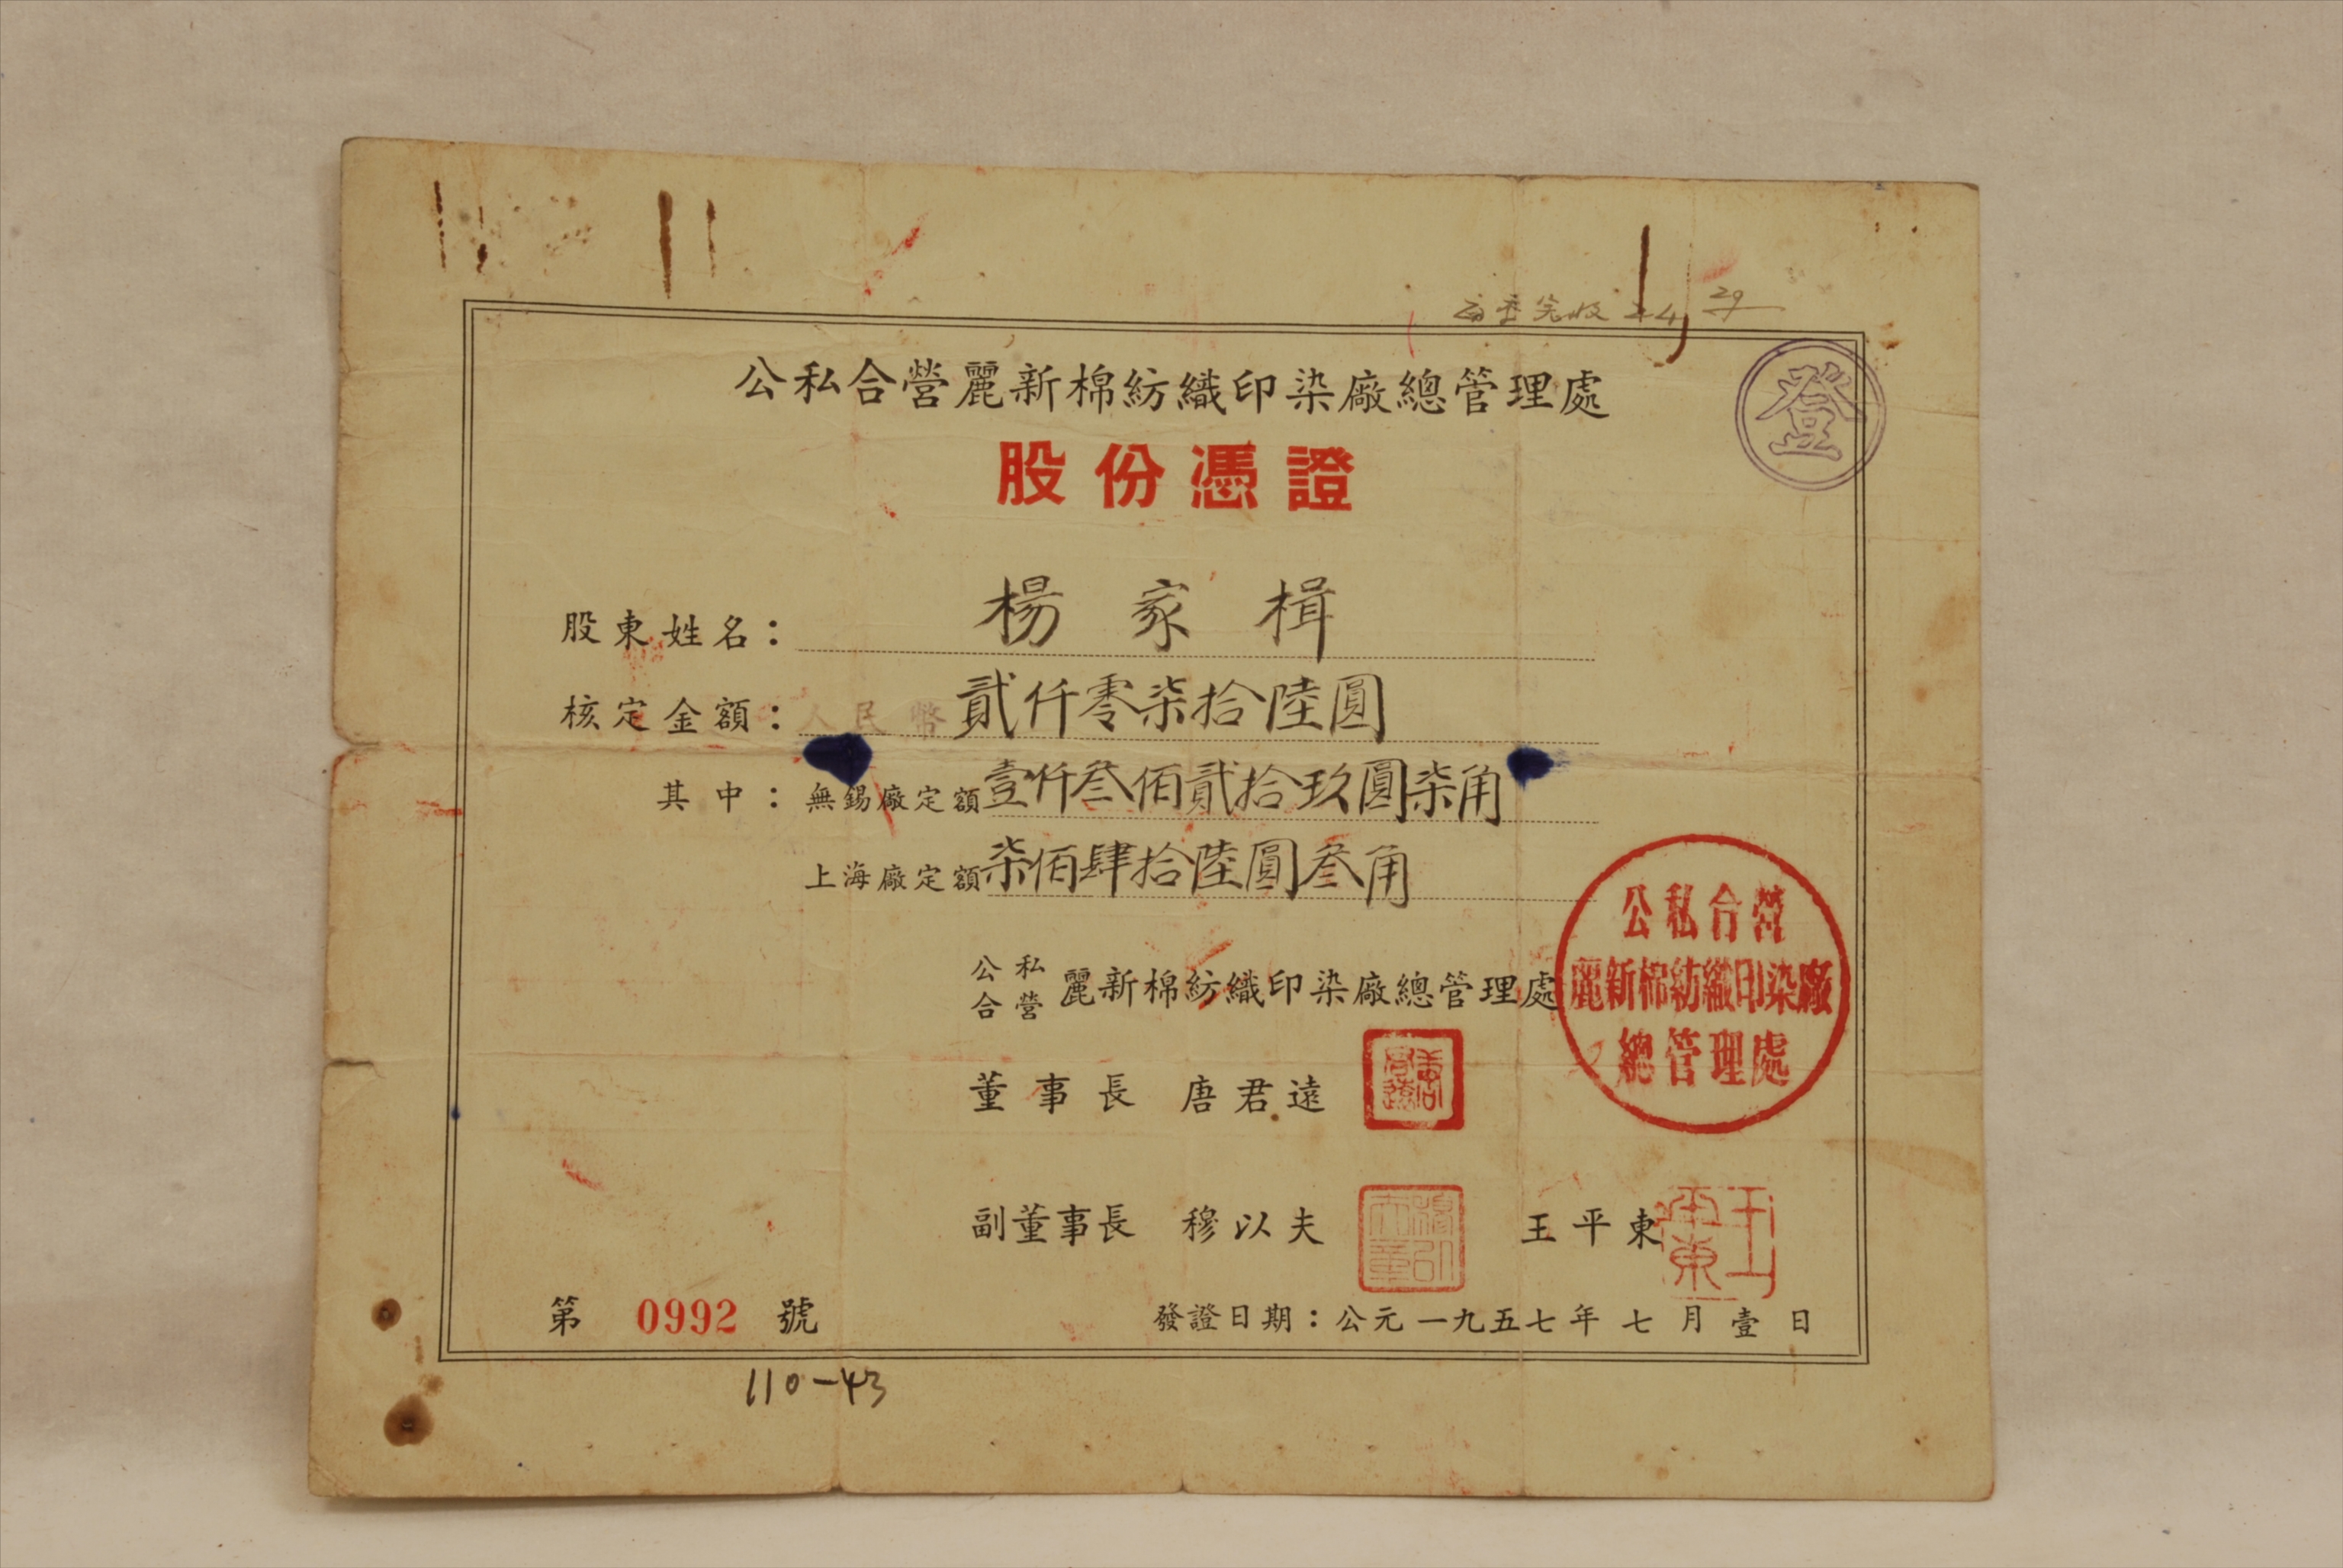 公私合營麗新棉紡織印染廠總管理處
登
股份憑證
股東姓名：楊家楫
核定金額：人民幣貳仟零柒拾陸圓
其中：無錫廠定額壹仟叁佰貳拾玖圓柒角
上海廠定額柒佰肆拾陸圓叁角
公私合營麗新棉紡織印染廠總管理處
公私合營
麗新棉紡織印染廠
總管理處
董事長 唐君遠
副董事長 穆以夫 王平東
第 0992 號
發證日期：公元一九五七年七月壹日
110-43